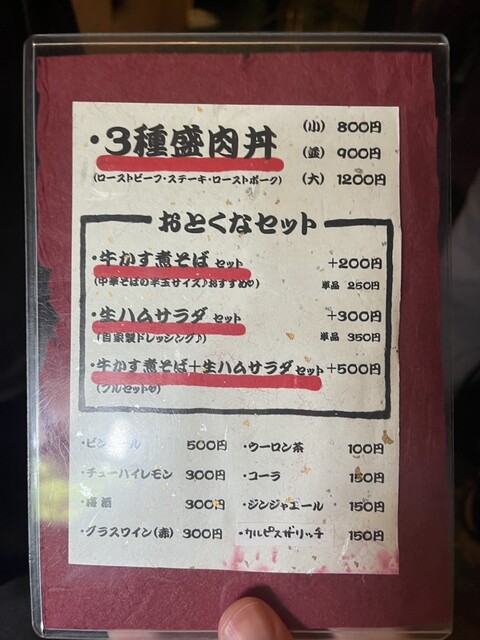 ・3種盛肉丼
(小) 800円
(並) 900円
(大) 1200円
(ローストビーフ・ステーキ・ローストポーク)
おとくなセット
・牛かす煮そば セット +200円
(中華そばの半玉サイズ♪おすすめ♡) 単品 250円
・生ハムサラダ セット +300円
(自家製ドレッシング♪) 単品 350円
・牛かす煮そば+生ハムサラダ セット +500円
(フルセット♡)
・ビン ール 500円 ・ウーロン茶 100円
・チューハイレモン 300円 ・コーラ 150円
・梅酒 300円 ・ジンジャエール 150円
・グラスワイン(赤) 300円 ・カルピスガリッチ 150円